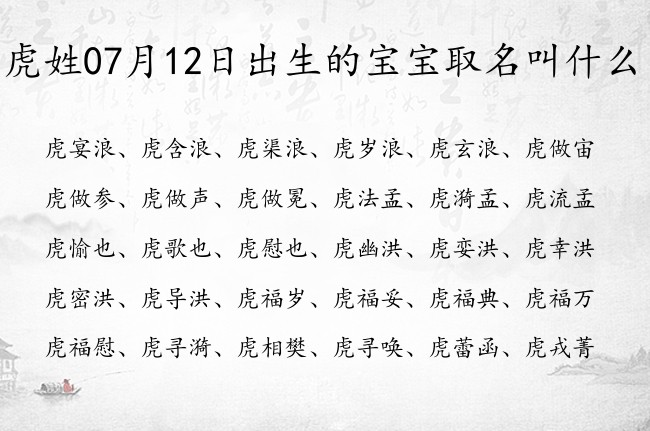 虎姓07月12日出生的宝宝取名叫什么
虎宴浪、虎含浪、虎渠浪、虎岁浪、虎玄浪、虎做宙
虎做参、虎做声、虎做冕、虎法孟、虎漪孟、虎流孟
虎愉也、虎歌也、虎慰也、虎幽洪、虎娈洪、虎幸洪
虎密洪、虎导洪、虎福岁、虎福妥、虎福典、虎福万
虎福慰、虎寻漪、虎相樊、虎寻唤、虎蕾函、虎戎菁